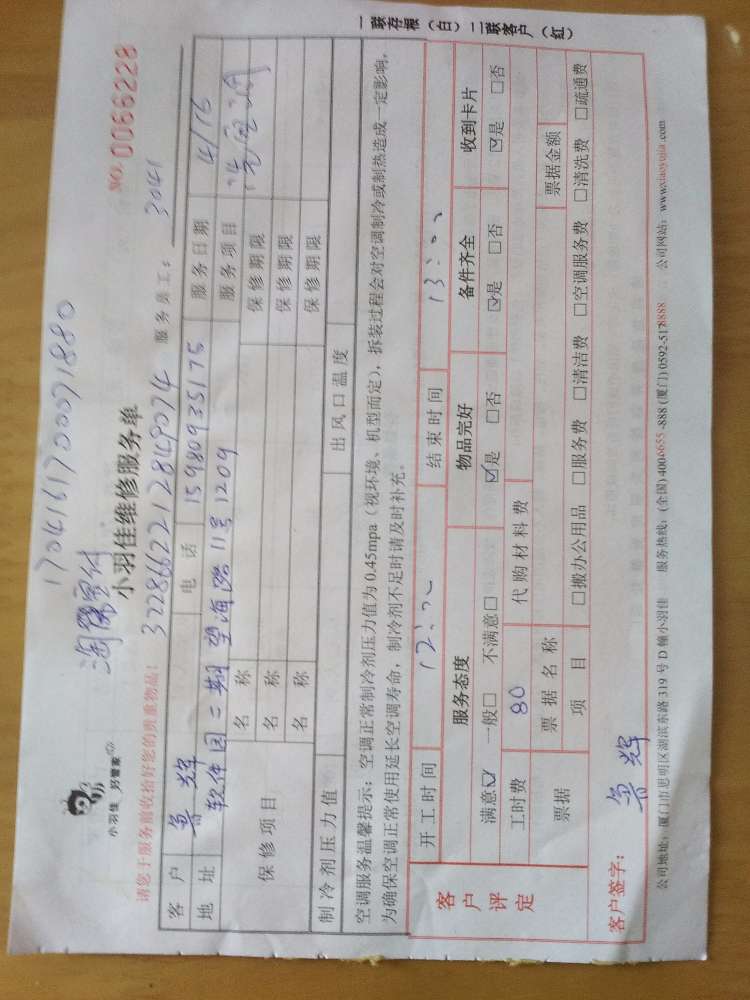 一联存根（白）二联客户（红）
NO. 0066228
1704161700071880
小羽佳 好管家
小羽佳维修服务单
3228662212849074
请您于服务前收拾好您的贵重物品！
服务员工： 3041
客户 鲁辉 电话 15980935175 服务日期 4/16
地址 软件园二期望海路11号1209 服务项目
保修项目
名称 保修期限
名称 保修期限
名称 保修期限
制冷剂压力值 出风口温度
空调服务温馨提示：空调正常制冷剂压力值为0.45mpa（视环境、机型而定），拆装过程会对空调制冷或制热造成一定影响，
为确保空调正常使用延长空调寿命，制冷剂不足时请及时补充。
客户评定
开工时间 12:00 结束时间 13:00
服务态度 物品完好 备件齐全 收到卡片
满意☑ 一般□ 不满意□ ☑是 □否 ☑是 □否 ☑是 □否
工时费 80 代购材料费
票据 票据名称 票据金额
项目 □搬办公用品 □服务费 □清洁费 □空调服务费 □清洗费 □疏通费
客户签字： 鲁辉
公司地址：厦门市思明区湖滨东路319号D幢小羽佳 服务热线：(全国) 4006655-888 (厦门) 0592-5178888 公司网站：www.xiaoyujia.com